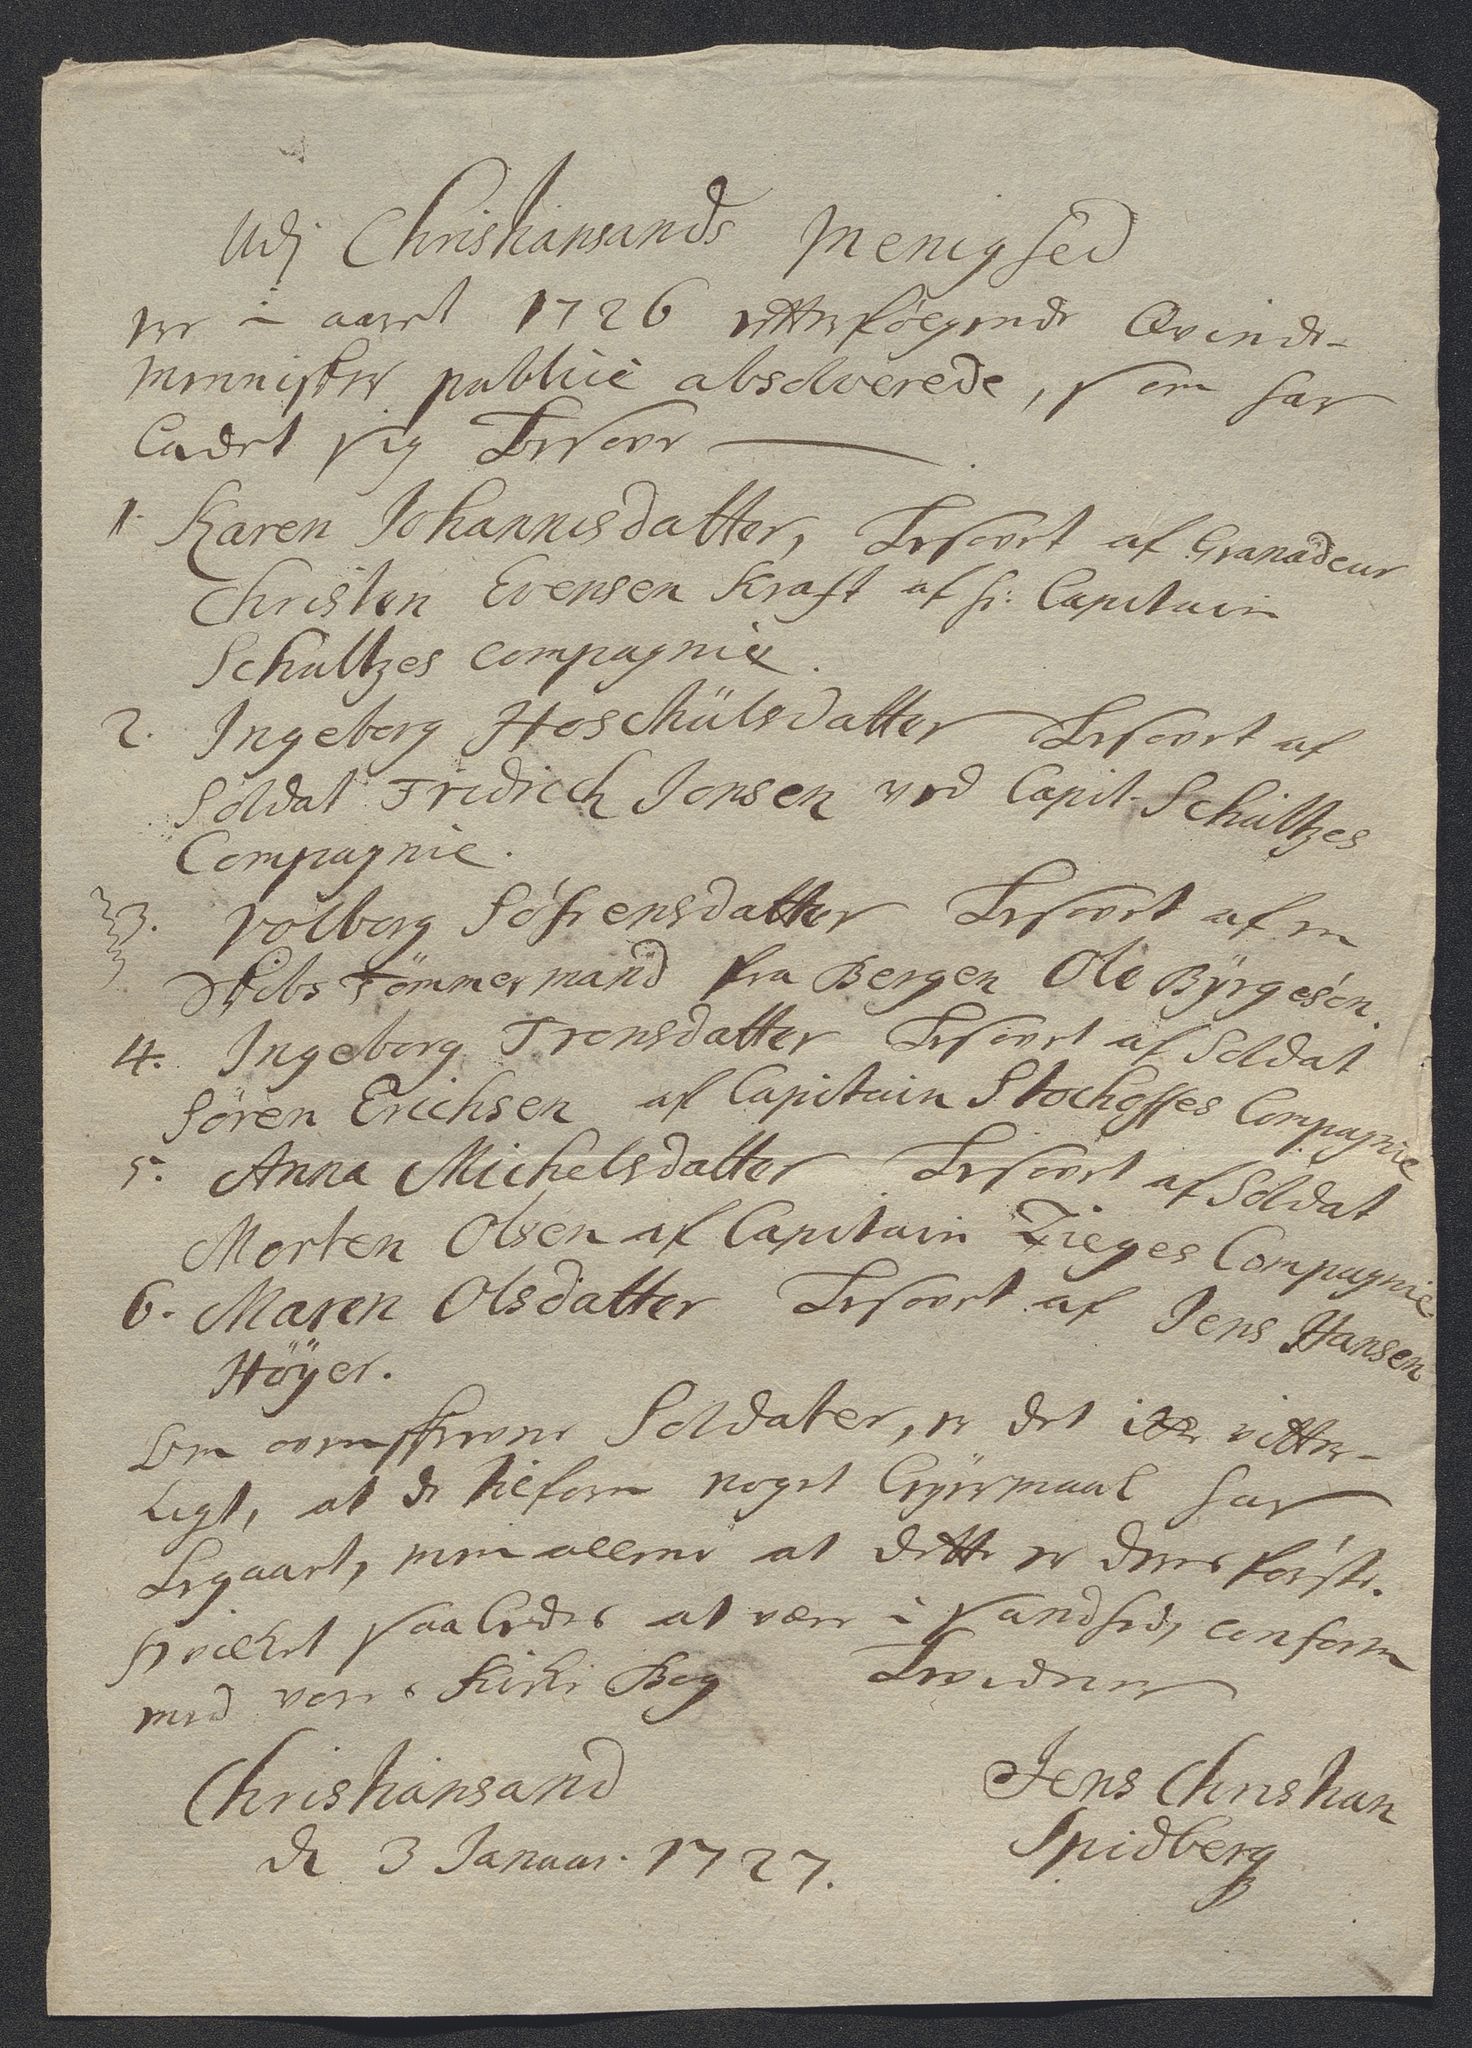 Udj Christiansands Menighed
er i aaret 1726 efterfølgende Qvinde-
mennisker publicè absolverede, som har
ladet sig besove
1. Karen Johannisdatter, besovet af Granadeur
Christen Evensen Kraft af hr: Capitain
Schultzes Compagnie.
2. Ingeborg Hoschülsdatter besovet af
Soldat Fridrich Jonsen ved Capit. Schültzes
Compagnie.
3. Volborg Söfrensdatter besovet af en
Skibs Tømmermand fra Bergen Ole Byrgesøn.
4. Ingeborg Tronsdatter besovet af Soldat
Sören Erichsen af Capitain Stockoffes Compagnie
5. Anna Michelsdatter besovet af Soldat
Morten Olsen af Capitain Zieges Compagnie
6. Maren Olsdatter besovet af Jens Hansen
Höyer.
Om ovenskrevne Soldater, er det icke vitter-
ligt, at de tilforn noget Leyermaal har
begaaet, men allene at dette er deres første.
Hvilket saaledes at være i sandhed, conform
med vores Kirke Bog bevidner
Christiansand
de 3 Januar. 1727.
Jens Christian
Spidberg